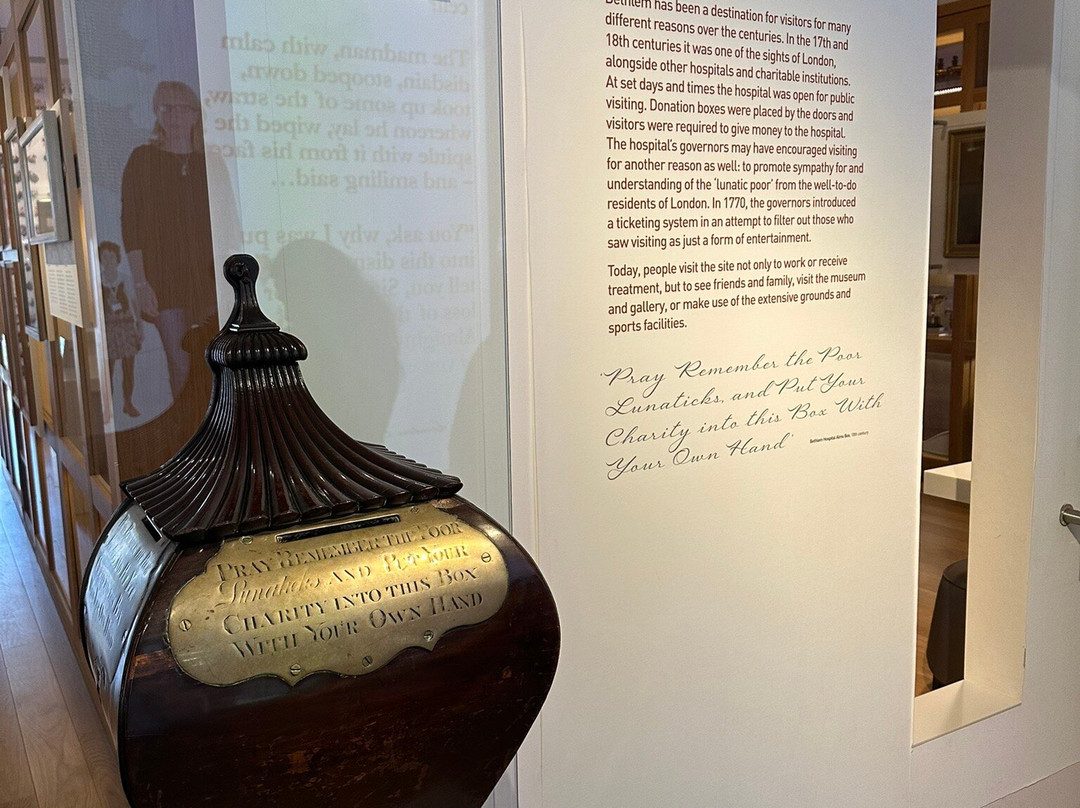 The madman, with calm
disdain, stooped down,
took up some of the straw,
whereon he lay, wiped the
spittle with it from his face
– and smiling said...
"You ask, why I was
into this
tell you,
loss of
PRAY REMEMBER THE POOR
Lunaticks AND PUT YOUR
CHARITY INTO THIS BOX
WITH YOUR OWN HAND
Bethlem has been a destination for visitors for many
different reasons over the centuries. In the 17th and
18th centuries it was one of the sights of London,
alongside other hospitals and charitable institutions.
At set days and times the hospital was open for public
visiting. Donation boxes were placed by the doors and
visitors were required to give money to the hospital.
The hospital's governors may have encouraged visiting
for another reason as well: to promote sympathy for and
understanding of the 'lunatic poor' from the well-to-do
residents of London. In 1770, the governors introduced
a ticketing system in an attempt to filter out those who
saw visiting as just a form of entertainment.
Today, people visit the site not only to work or receive
treatment, but to see friends and family, visit the museum
and gallery, or make use of the extensive grounds and
sports facilities.
'Pray Remember the Poor
Lunaticks, and Put Your
Charity into this Box With
Your Own Hand'
Bethlem Hospital Alms Box,